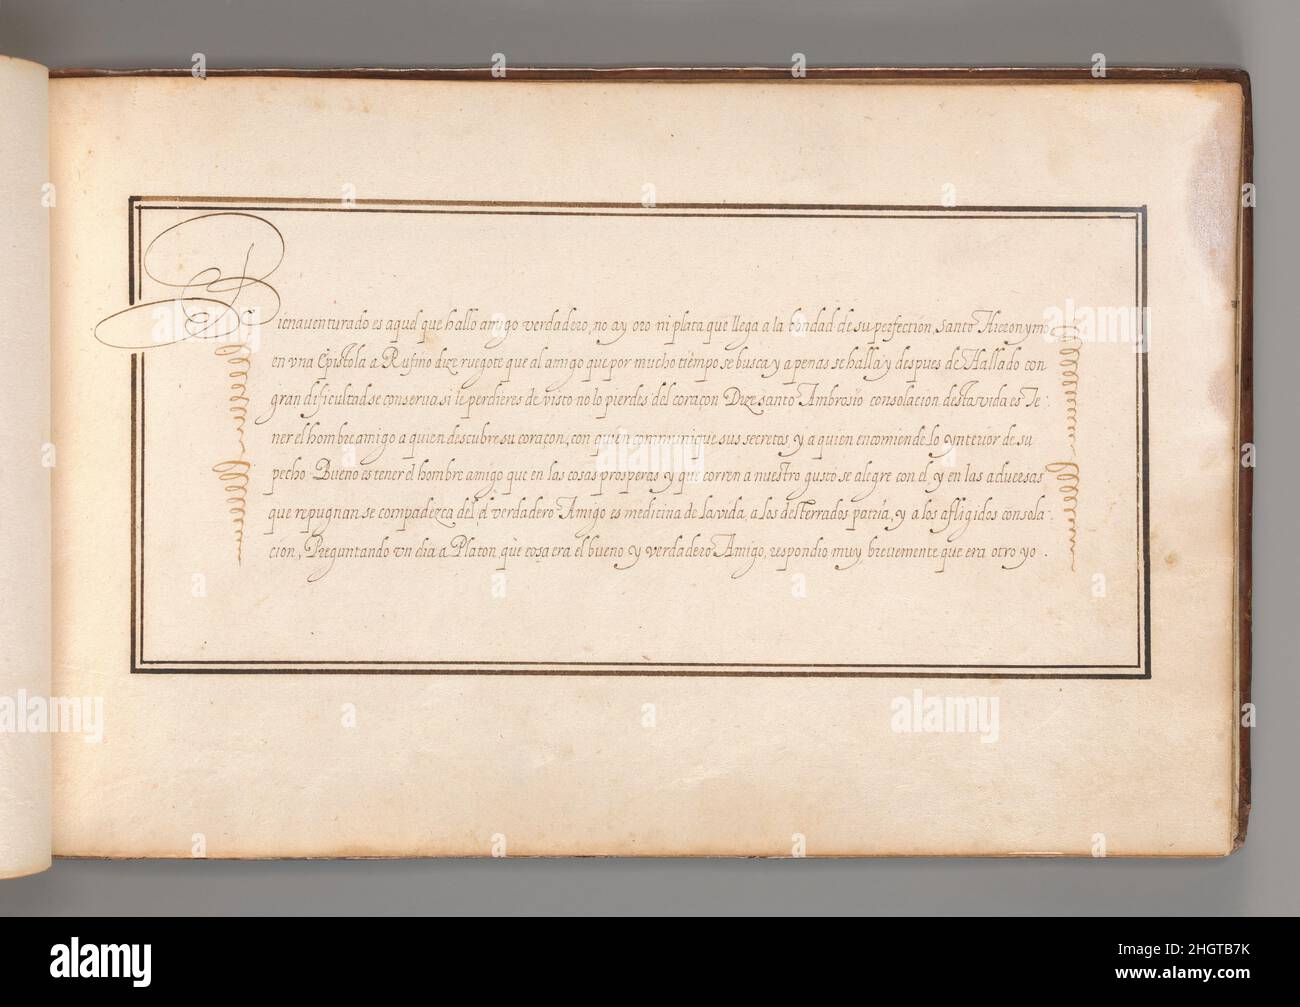 Bienaventurado es aquel que hallo amigo verdadero, no ay oro ni plata que llega a la bondad de su perfection, santo Hieronymo
en vna Epistola a Rufino dize ruegote que al amigo que por mucho tiempo se busca y apenas se halla y despues de Hallado con
gran dificultad se conserua si le perdieres de visto no lo pierdes del coraçon Dize santo Ambrosio consolacion desta vida es Te:
ner el hombre amigo a quien descubre su coraçon, con quien communique sus secretos, y a quien encomiende lo ynterior de su
pecho Bueno es tener el hombre amigo que en las cosas prosperas y que corren a nuestro gusto se alegre con el, y en las aduersas
que repugnan se compadezca del, el verdadero Amigo es medicina de la vida, a los desterrados patria, y a los afligidos consola:
cion, Preguntando vn dia a Platon, que cosa era el bueno y verdadero Amigo, respondio muy breuemente que era otro yo.
alamy
alamy
alamy
alamy
Image ID: 2HGTB7K
www.alamy.com